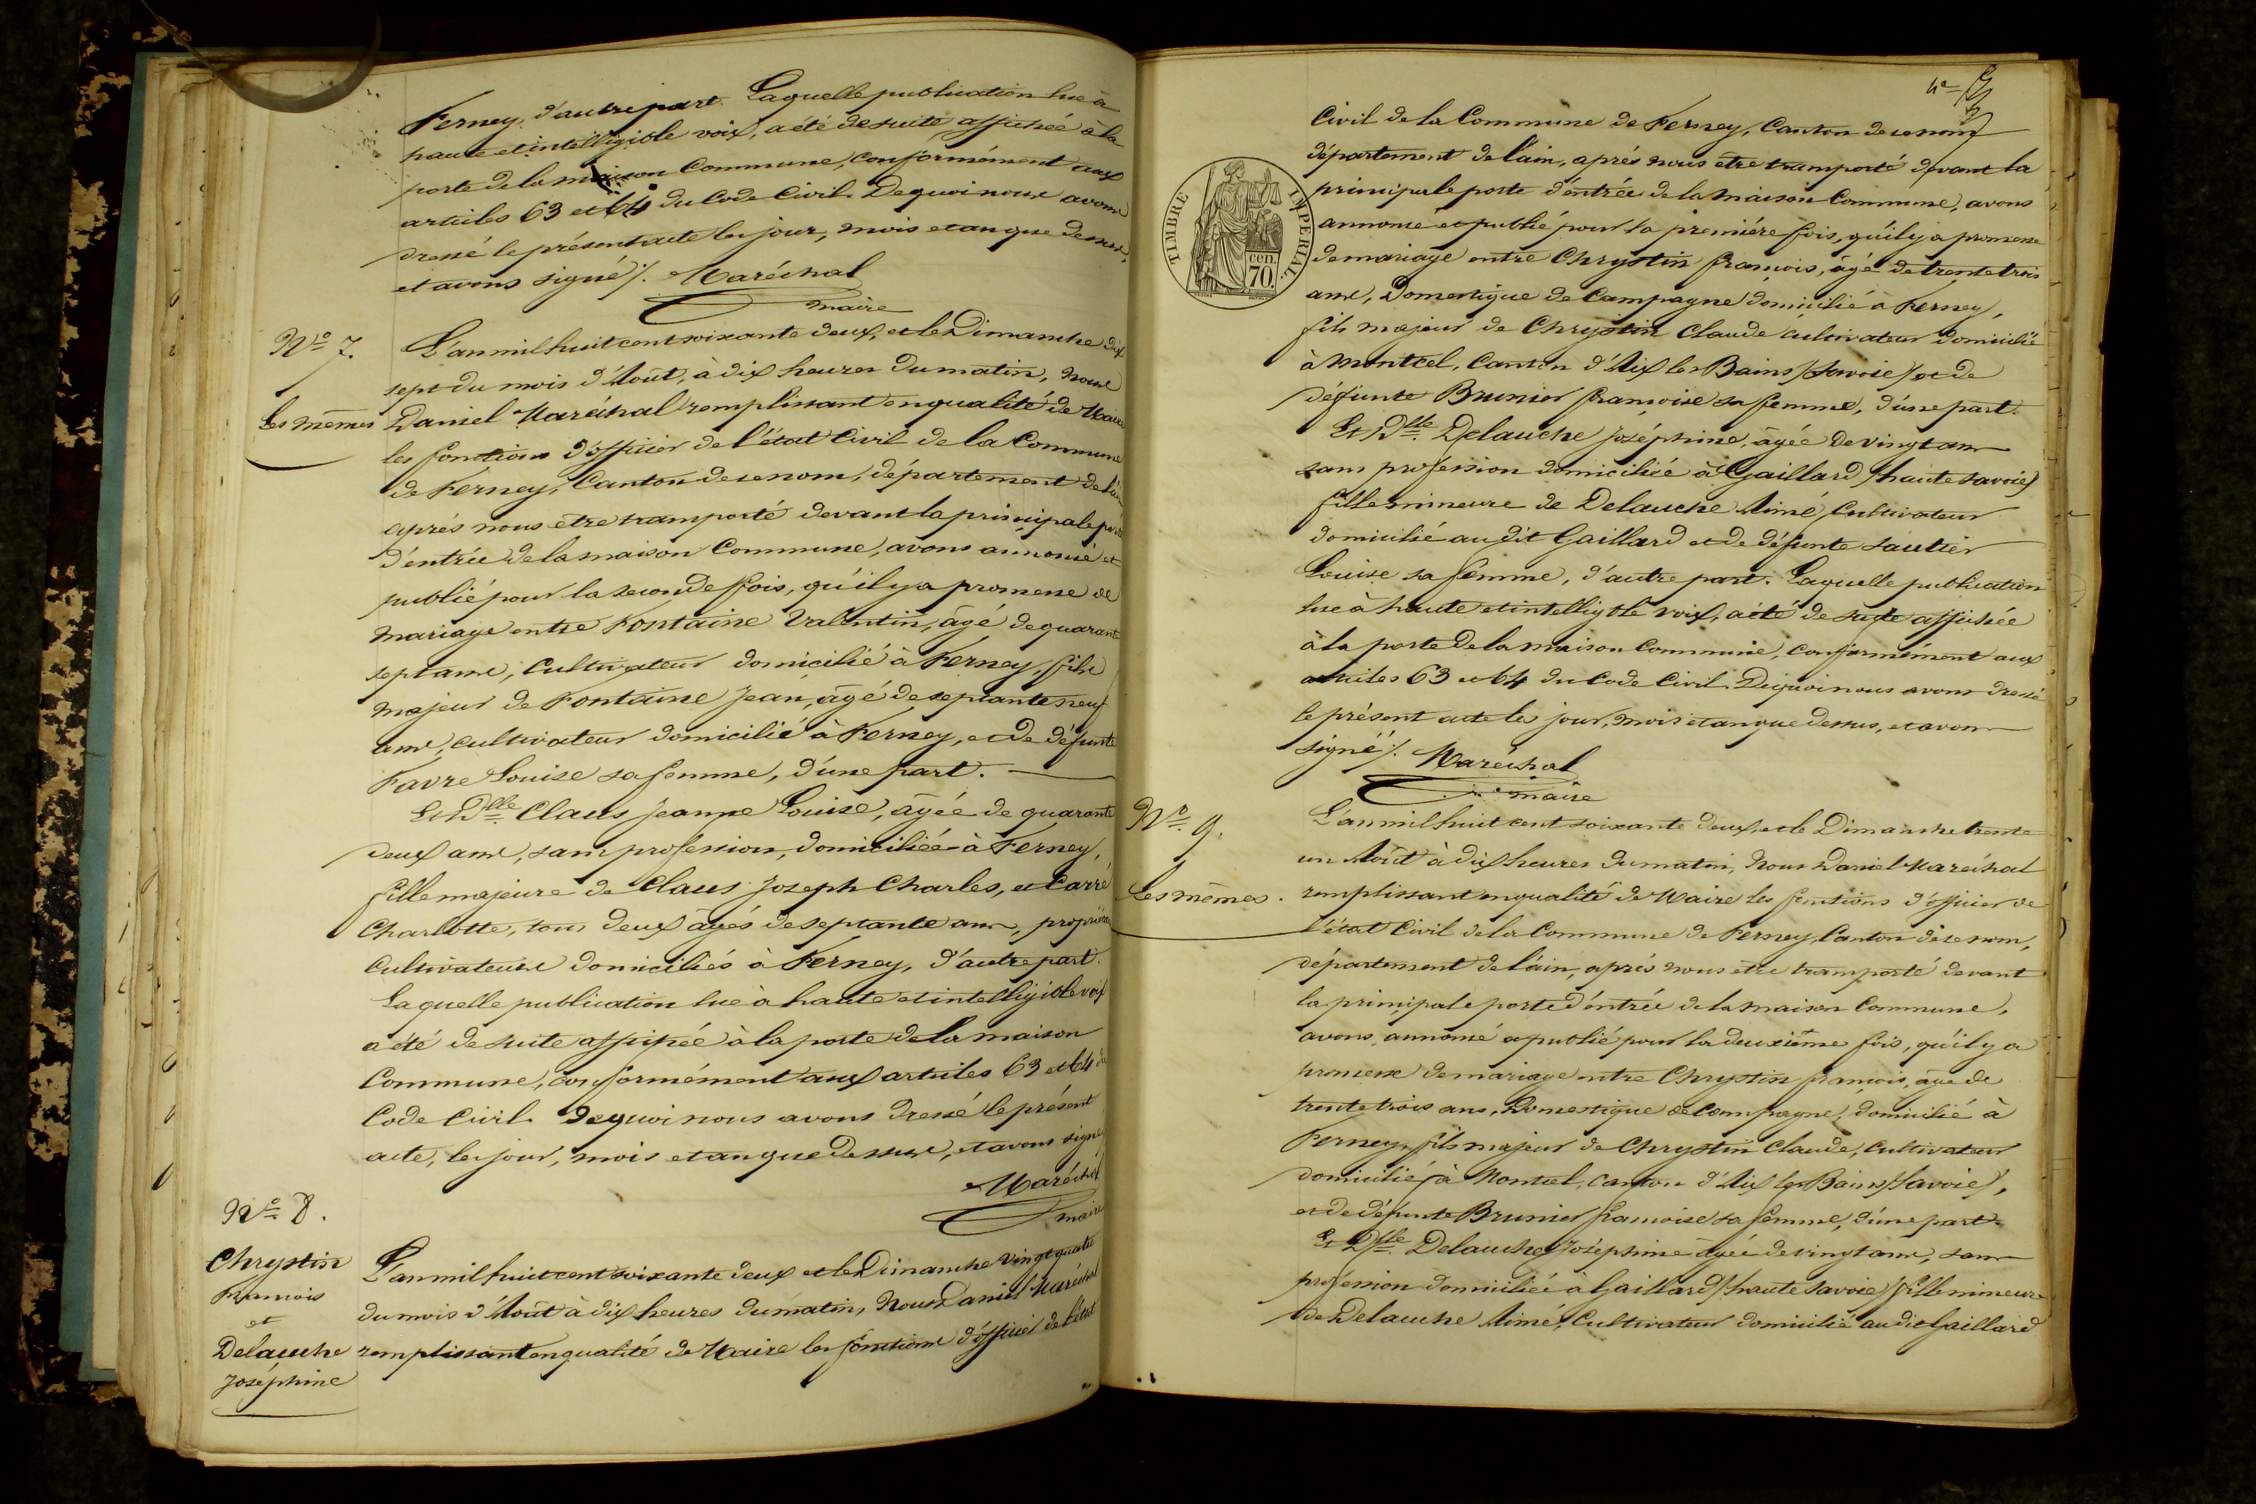 Ferney, d'autre part. Laquelle publication lue à
haute et intelligible voix, a été de suite affichée à la
porte de la maison Commune, conformément aux
articles 63 et 64 du Code Civil. De quoi nous avons
dressé le présent acte les jour, mois et an que dessus,
et avons signé ./. Maréchal
maire
N° 7.
Les mêmes
L'an mil huit cent soixante deux, et le Dimanche dix
sept du mois d'Août, à dix heures du matin, Nous
Daniel Maréchal remplissant en qualité de Maire
les fonctions d'officier de l'état Civil de la Commune
de Ferney, Canton de ce nom, département de l'ain
après nous être transporté devant la principale porte
d'entrée de la maison Commune, avons annoncé et
publié pour la seconde fois, qu'il y a promesse de
mariage entre Fontaine Valentin, âgé de quarante
sept ans, Cultivateur domicilié à Ferney, fils
majeur de Fontaine Jean, âgé de septante neuf
ans, cultivateur domicilié à Ferney, et de défunte
Favre Louise sa femme, d'une part.
Et Dlle Claus Jeanne Louise, âgée de quarante
deux ans, sans profession, domiciliée à Ferney,
fille majeure de Claus Joseph Charles, et Carré
Charlotte, tous deux âgés de septante ans,
Cultivateurs domiciliés à Ferney, d'autre part.
Laquelle publication lue à haute et intelligible voix
a été de suite affichée à la porte de la maison
Commune, conformément aux articles 63 et 64 du
Code Civil. De quoi nous avons dressé le présent
acte, les jour, mois et an que dessus, et avons signé
Maréchal
maire
N° 8.
Chrystin
François
et
Delauche
Joséphine
L'an mil huit cent soixante deux et le Dimanche vingt quatre
du mois d'Août à dix heures du matin, Nous Daniel Maréchal
remplissant en qualité de Maire les fonctions d'officier de l'état
Civil de la Commune de Ferney, Canton de ce nom
département de l'ain, après nous être transporté devant la
principale porte d'entrée de la maison Commune, avons
annoncé et publié pour la première fois, qu'il y a promesse
de mariage entre Chrystin françois, âgé de trente trois
ans, Domestique de Campagne domicilié à Ferney,
fils majeur de Chrystin Claude cultivateur domicilié
à Montcel, Canton d'Aix les Bains (Savoie) et de
défunte Brunier françoise sa femme, d'une part.
Et Dlle Delauche Joséphine, âgée de vingt ans
sans profession domiciliée à Gaillard (haute savoie)
fille mineure de Delauche Aimé Cultivateur
domicilié au dit Gaillard et de défunte Sautier
Louise sa femme, d'autre part. Laquelle publication
lue à haute et intelligible voix, a été de suite affichée
à la porte de la maison Commune, conformément aux
articles 63 et 64 du Code Civil. De quoi nous avons dressé
le présent acte les jour, mois et an que dessus, et avons
signé ./. Maréchal
maire
TIMBRE IMPERIAL.
70. cen.
N° 9.
Les mêmes.
L'an mil huit cent soixante deux, et le Dimanche trente
un Août à dix heures du matin, Nous Daniel Maréchal
remplissant en qualité de Maire les fonctions d'officier de
l'état Civil de la Commune de Ferney, Canton de ce nom,
département de l'ain, après nous être transporté devant
la principale porte d'entrée de la maison Commune,
avons annoncé et publié pour la deuxième fois, qu'il y a
promesse de mariage entre Chrystin françois, âgé de
trente trois ans, Domestique de Campagne, domicilié à
Ferney, fils majeur de Chrystin Claude, Cultivateur
domicilié à Montcel, canton d'Aix les Bains (Savoie),
et de défunte Brunier françoise sa femme, d'une part.
Et Dlle Delauche Joséphine âgée de vingt ans, sans
profession domiciliée à Gaillard (haute Savoie) fille mineure
de Delauche Aimé, Cultivateur domicilié au dit Gaillard